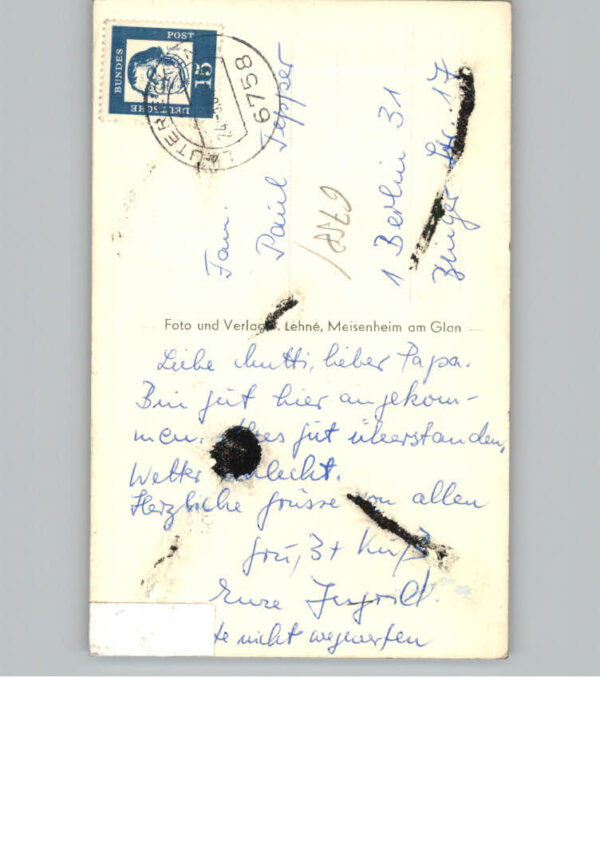 DEUTSCHE
BUNDES
POST
15
6758
LAUTER
24.
Fam.
Paul Tepper
1 Berlin 31
Str. 17
6758/
Foto und Verlag K. Lehné, Meisenheim am Glan
Liebe Mutti, lieber Papa.
Bin gut hier angekom-
men. Alles gut überstanden,
Wetter schlecht.
Herzliche Grüsse von allen
Gruß + Kuß
Eure Ingrid.
nicht wegwerfen